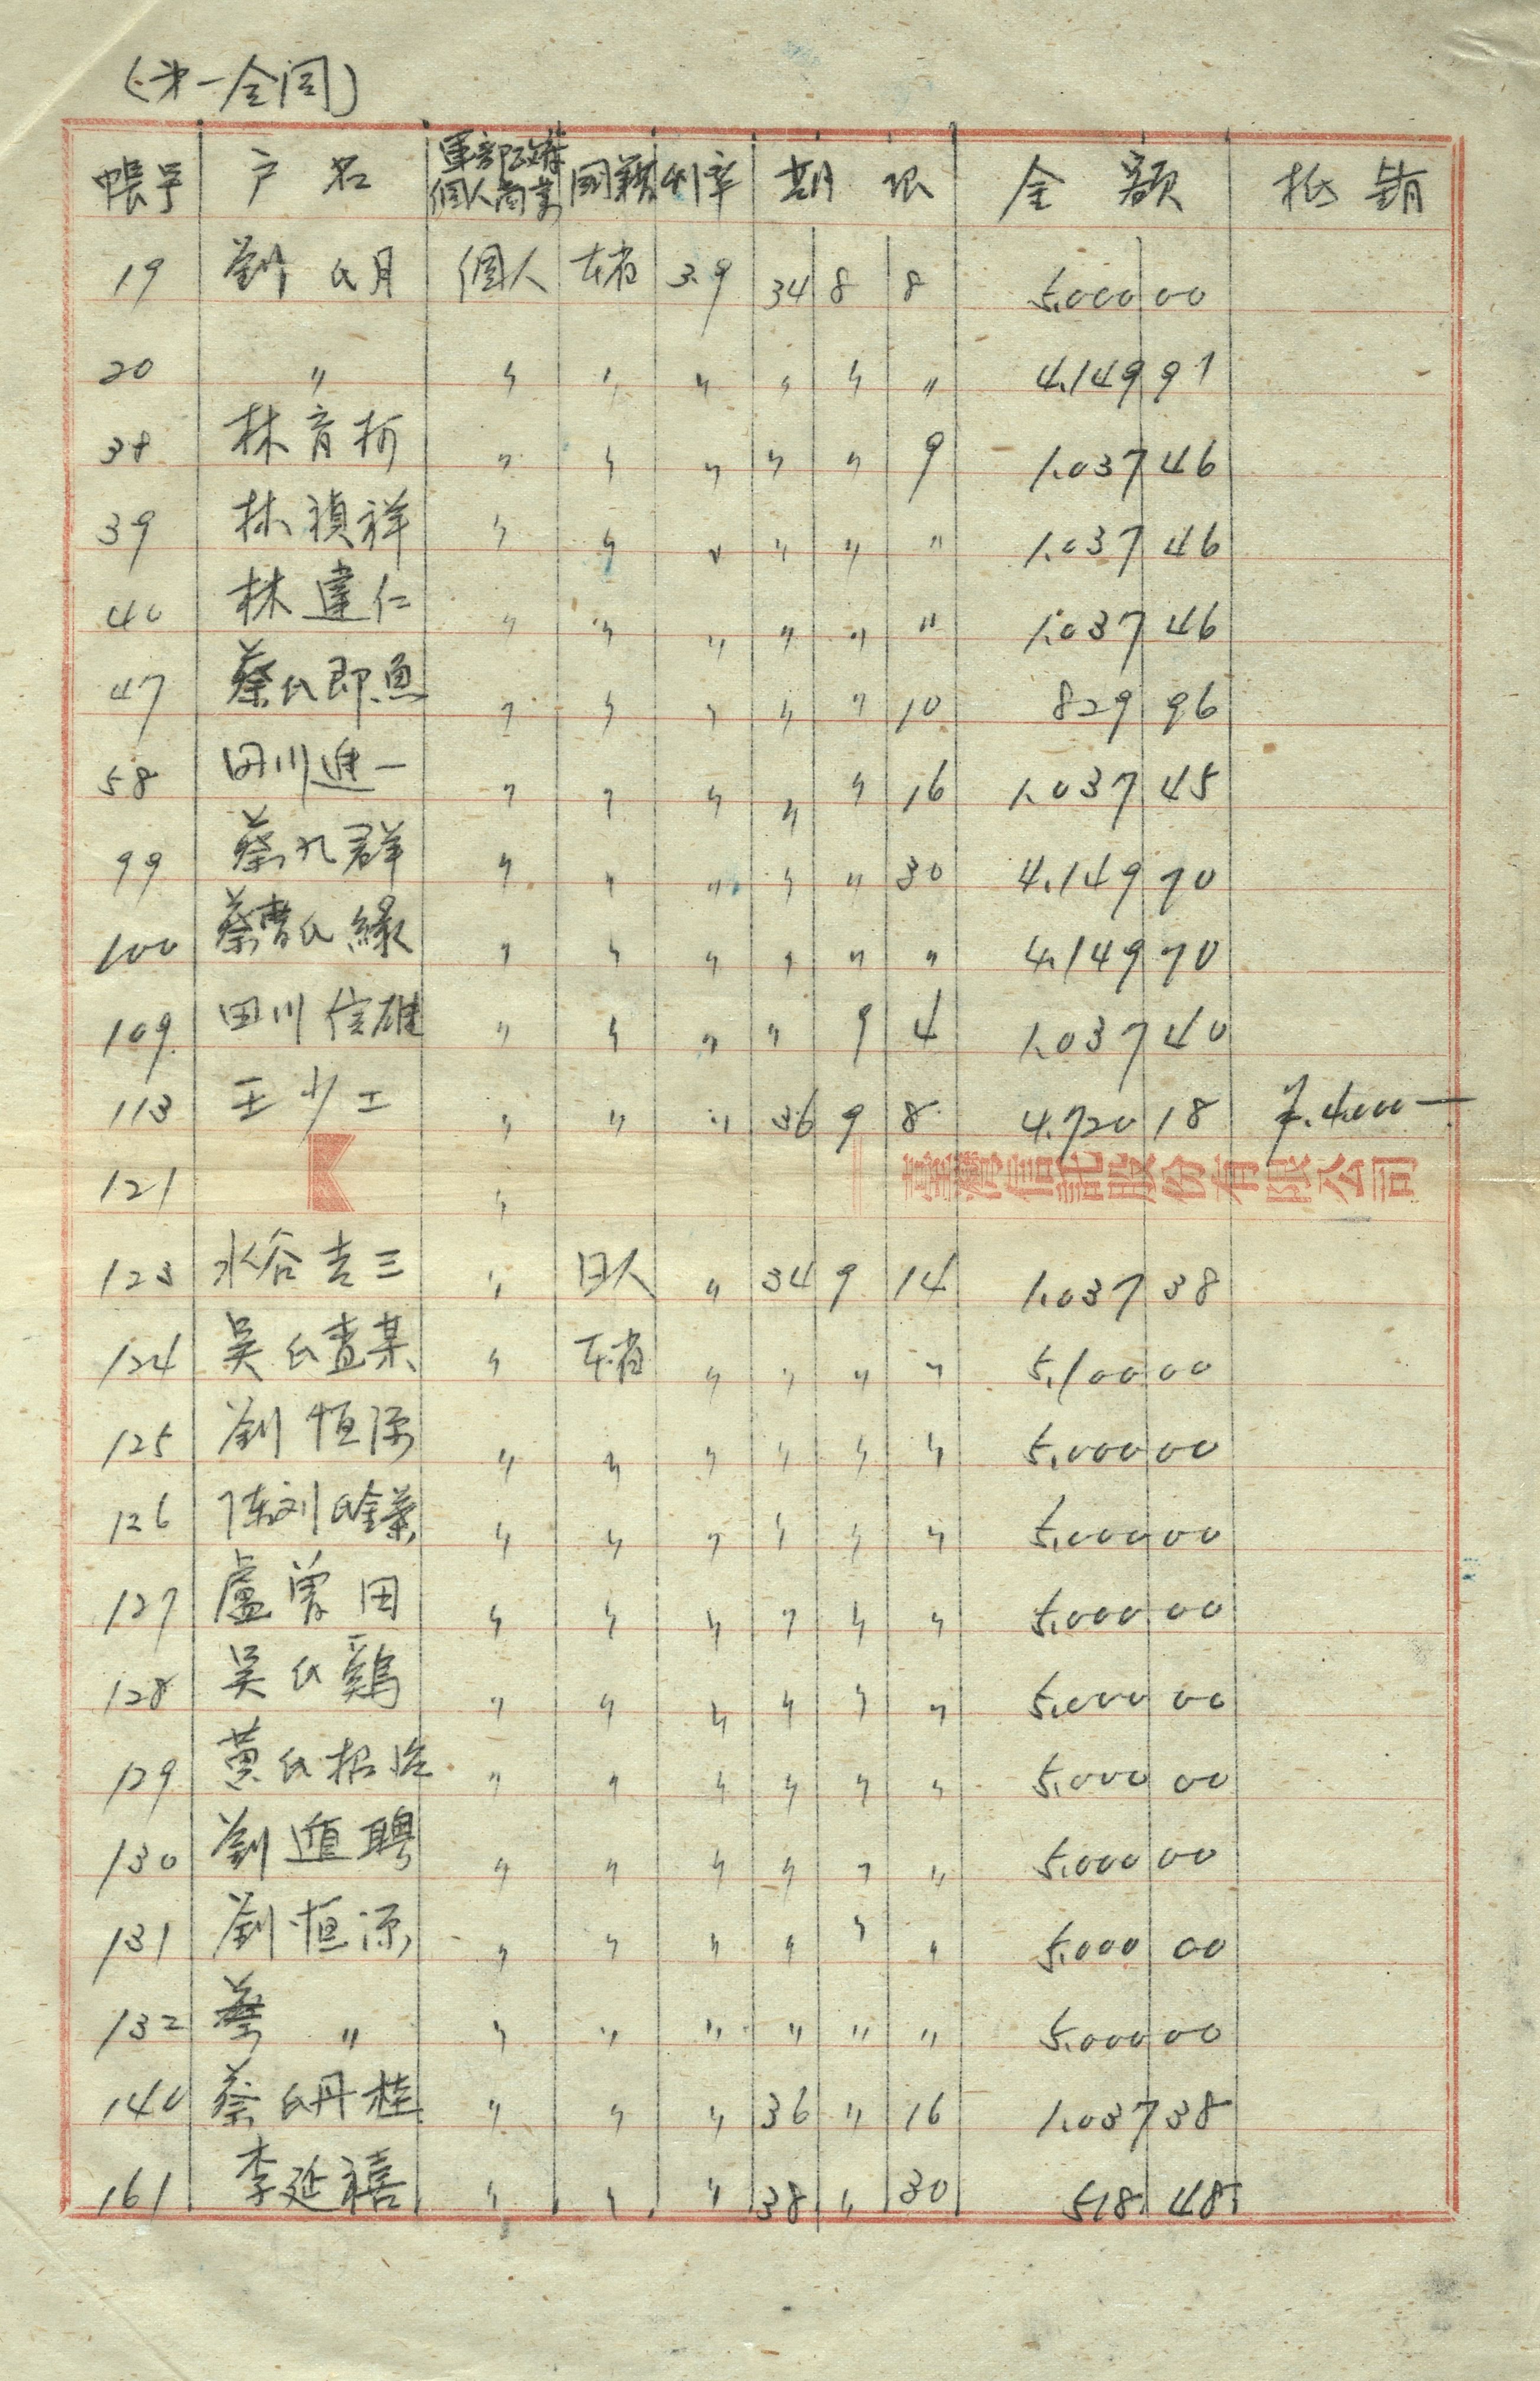 (才一合同)
帳号 户名 軍部政府 個人商業 国籍 利率 期限 金額 抵銷
19 劉氏月 個人 本省 3.9 34 8 8 5.000 00
20 〃 〃 〃 〃 〃 〃 〃 4.149 97
38 林育柯 〃 〃 〃 〃 〃 9 1.037 46
39 林禎祥 〃 〃 〃 〃 〃 〃 1.037 46
40 林達仁 〃 〃 〃 〃 〃 〃 1.037 46
47 蔡氏即魚 〃 〃 〃 〃 〃 10 829 96
58 田川進一 〃 〃 〃 〃 〃 16 1.037 45
99 蔡九群 〃 〃 〃 〃 〃 30 4.149 70
100 蔡曹氏緣 〃 〃 〃 〃 〃 〃 4.149 70
109 田川信雄 〃 〃 〃 〃 9 4 1.037 40
113 王少工 〃 〃 〃 36 9 8 4.720 18 4.000—
121 〃
臺灣信託股份有限公司
123 水谷吉三 〃 日人 〃 34 9 14 1.037 38
124 吳氏查某 〃 本省 〃 〃 〃 〃 5.100 00
125 劉恒源 〃 〃 〃 〃 〃 〃 5.000 00
126 陳刘氏金葉 〃 〃 〃 〃 〃 〃 5.000 00
127 盧曽田 〃 〃 〃 〃 〃 〃 5.000 00
128 吳氏鷄 〃 〃 〃 〃 〃 〃 5.000 00
129 黃氏招治 〃 〃 〃 〃 〃 〃 5.000 00
130 劉遁聘 〃 〃 〃 〃 〃 〃 5.000 00
131 劉恒源 〃 〃 〃 〃 〃 〃 5.000 00
132 〃 〃 〃 〃 〃 〃 〃 5.000 00
140 蔡氏丹桂 〃 〃 〃 36 〃 16 1.037 38
161 李延禧 〃 〃 〃 38 〃 30 518 48